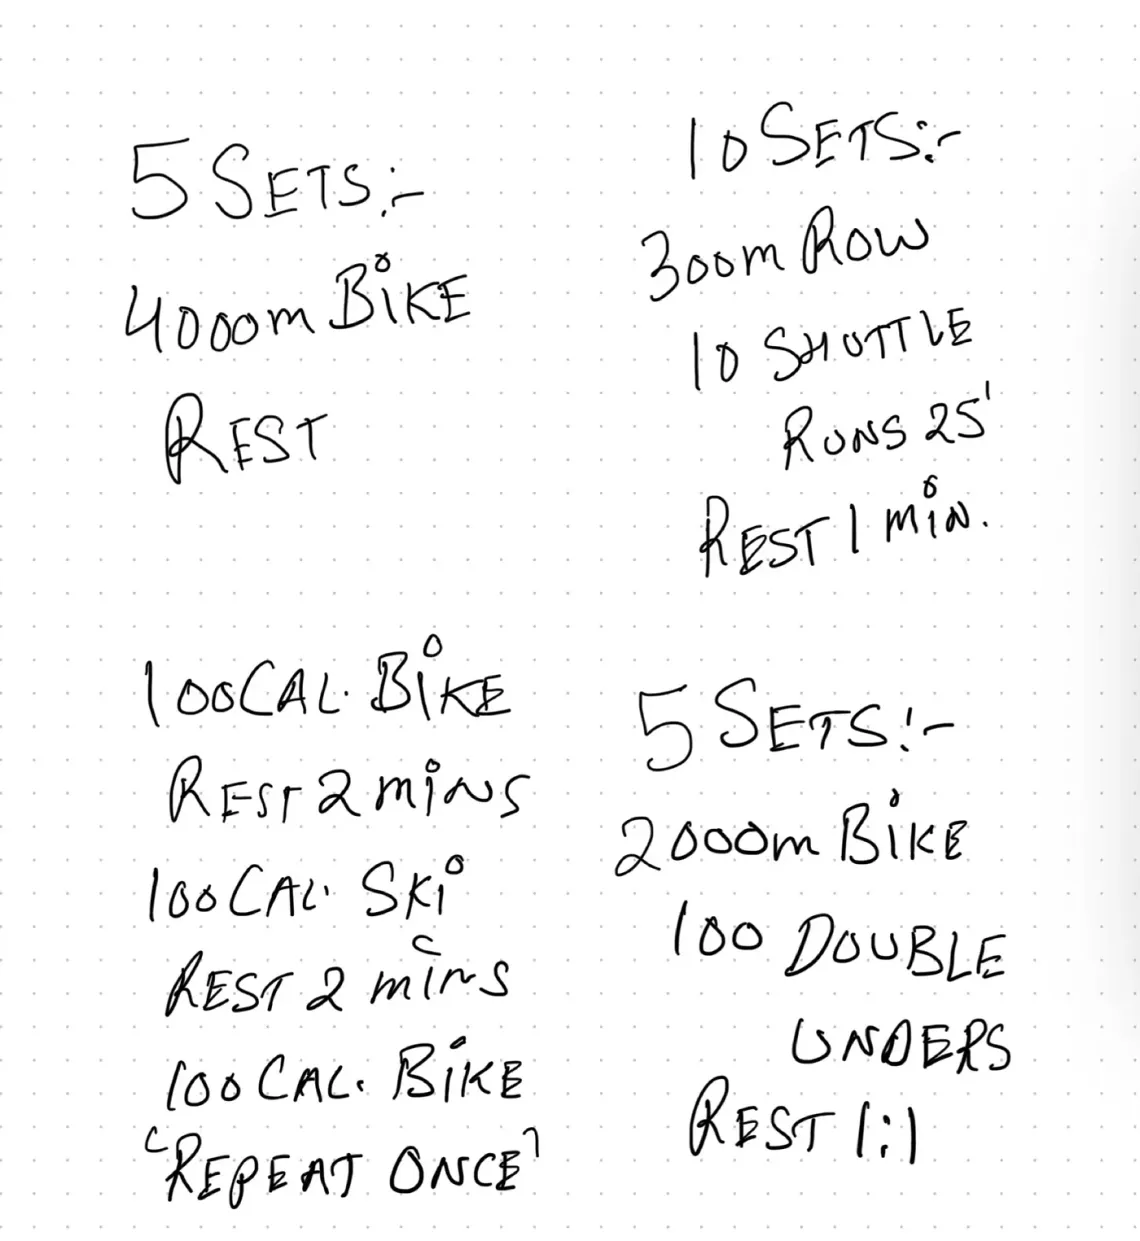 5 SETS:-
4000m BiKE
REST
10 SETS:-
300m ROW
10 SHUTTLE
RUNS 25'
REST 1 MiN.
100 CAL. BiKE
REST 2 MiNS
100 CAL. SKi
REST 2 MiNS
100 CAL. BiKE
'REPEAT ONCE'
5 SETS:-
2000m BiKE
100 DOUBLE
UNDERS
REST 1:1